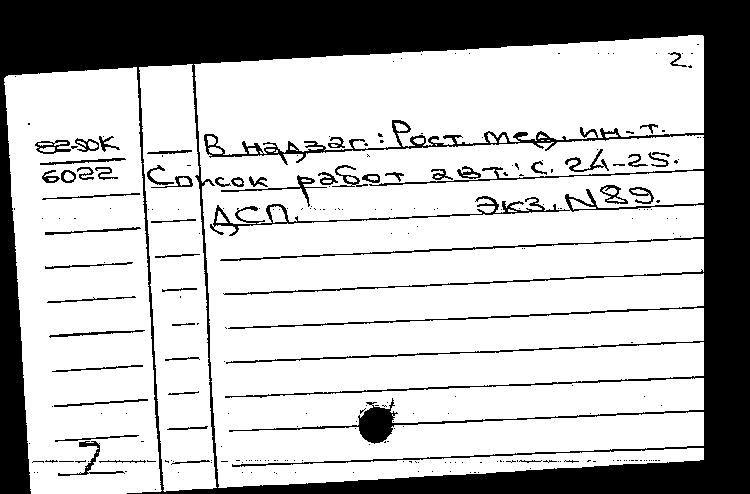 2.
82-50К
В надзаг.: Рост. мед. ин-т.
6022
Список работ авт.: с. 24-25.
ДСП. Экз. N 89.
7